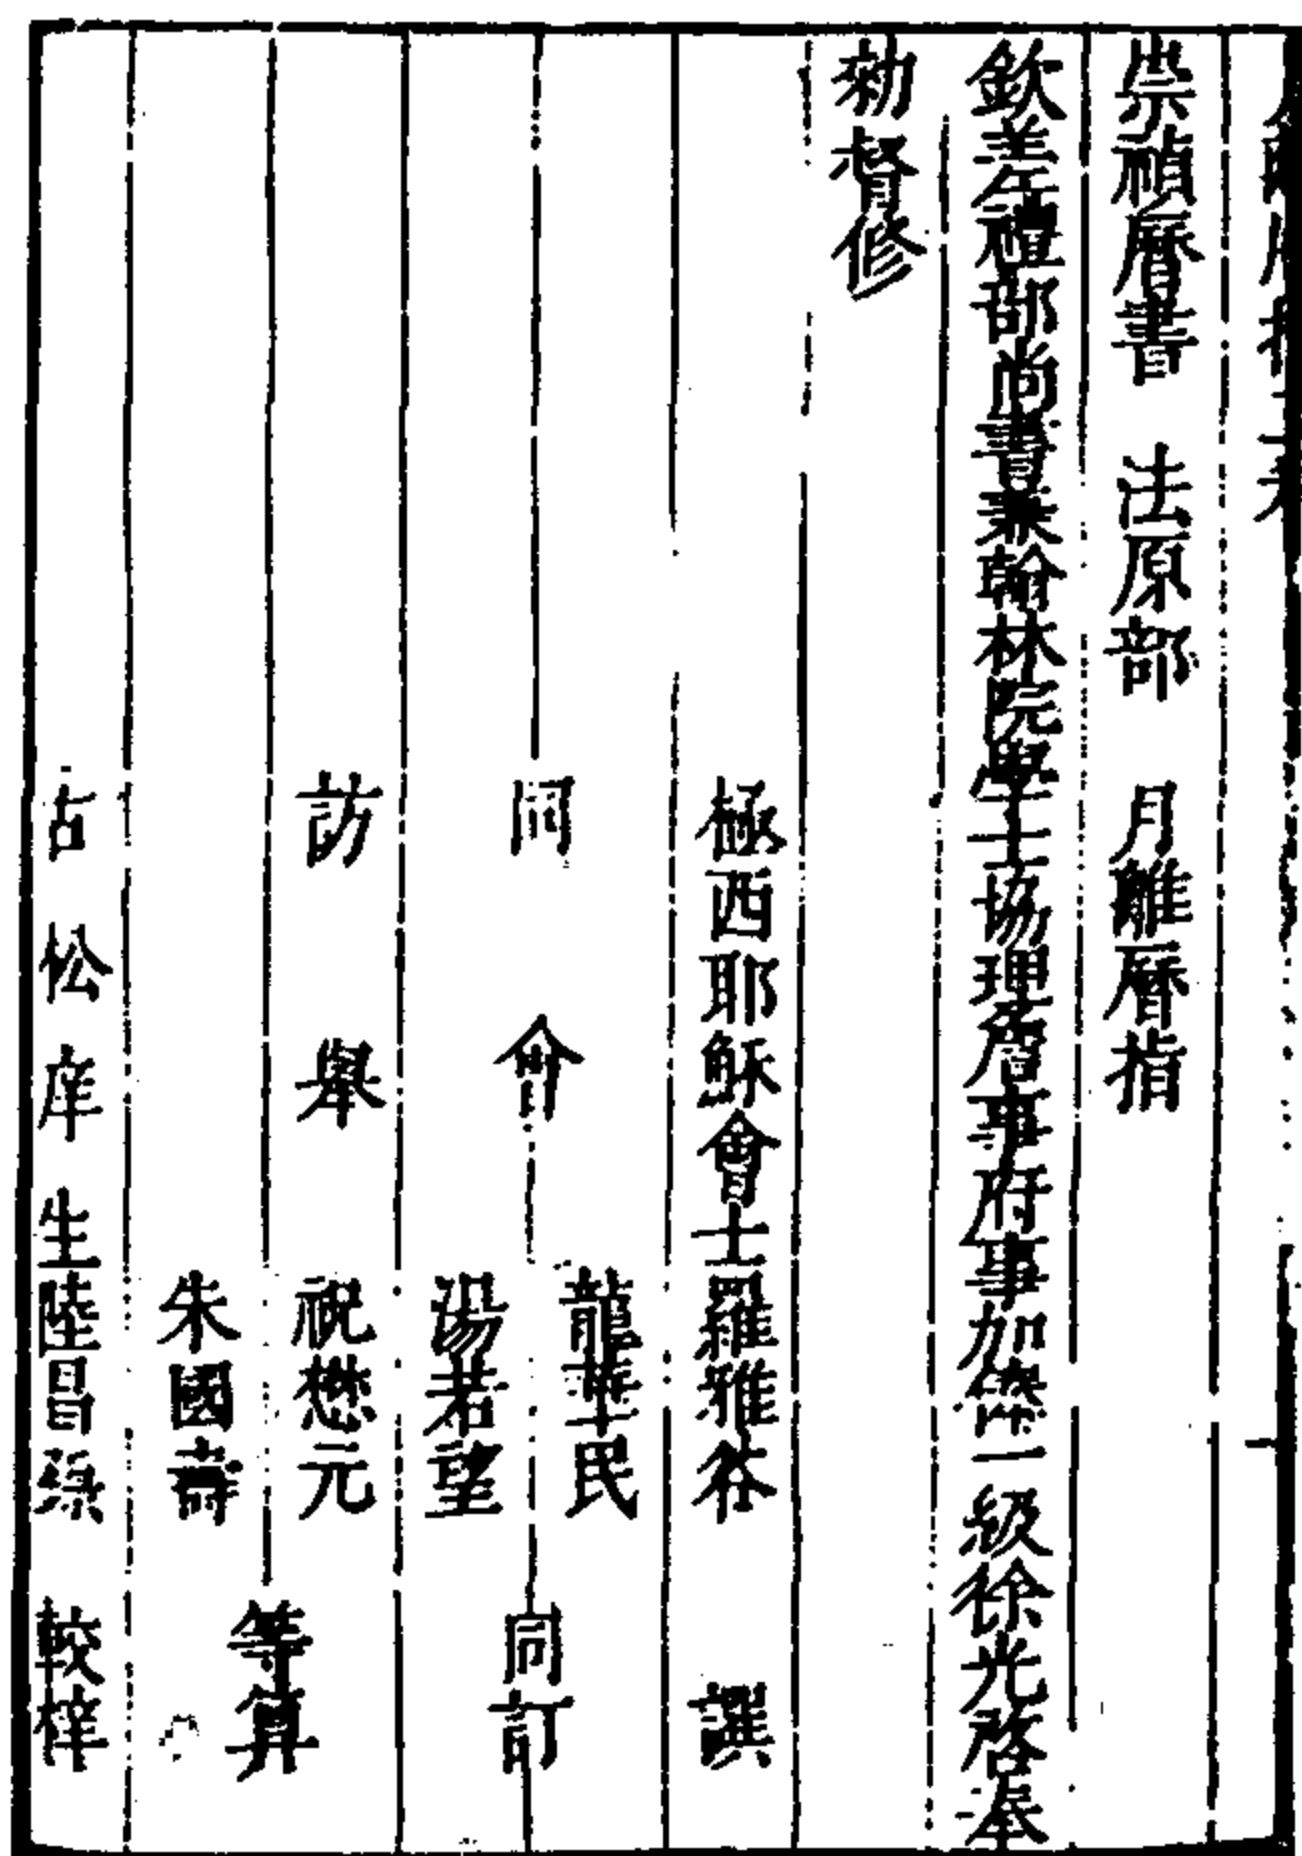 月離曆指一卷
崇禎曆書　法原部　月離曆指
欽差禮部尚書兼翰林院學士協理詹事府事加俸一級徐光啓奉
勑督修
極西耶穌會士羅雅谷　譔
同會　龍華民
湯若望　同訂
訪舉　祝懋元
朱國壽　等算
古松庠生陸昌　較梓